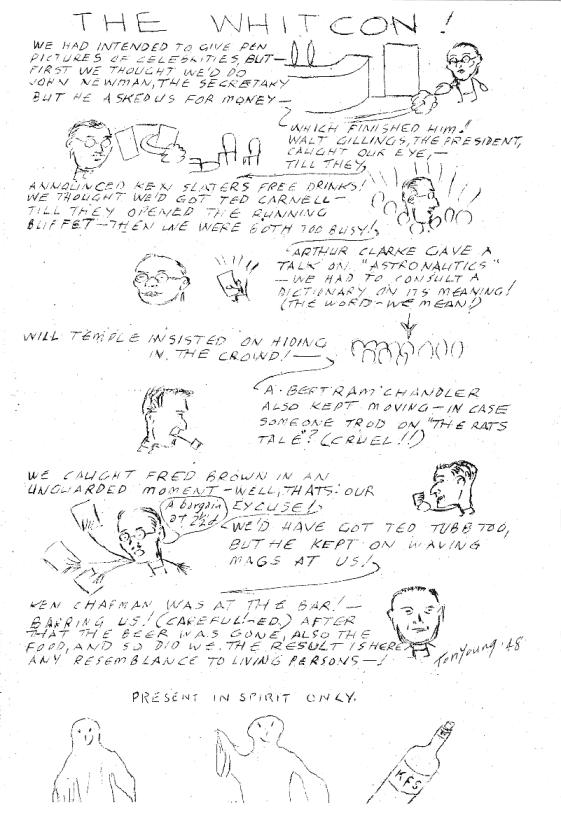 THE WHITCON!
WE HAD INTENDED TO GIVE PEN
PICTURES OF CELEBRITIES, BUT—
FIRST WE THOUGHT WE'D DO
JOHN NEWMAN, THE SECRETARY
BUT HE ASKED US FOR MONEY—
WHICH FINISHED HIM!
WALT GILLINGS, THE PRESIDENT,
CAUGHT OUR EYE,—
TILL THEY
ANNOUNCED KEN SLATERS FREE DRINKS!
WE THOUGHT WE'D GOT TED CARNELL—
TILL THEY OPENED THE RUNNING
BUFFET—THEN WE WERE BOTH TOO BUSY!
ARTHUR CLARKE GAVE A
TALK ON "ASTRONAUTICS"
—WE HAD TO CONSULT A
DICTIONARY ON ITS MEANING!
(THE WORD—WE MEAN!)
WILL TEMPLE INSISTED ON HIDING
IN THE CROWD!—
A. BERTRAM CHANDLER
ALSO KEPT MOVING—IN CASE
SOMEONE TROD ON "THE RATS
TALE"? (CRUEL!!)
WE CAUGHT FRED BROWN IN AN
UNGUARDED MOMENT—WELL, THATS OUR
EXCUSE!
A bargain
at 2/6d
We!
WE'D HAVE GOT TED TUBB TOO,
BUT HE KEPT ON WAVING
MAGS AT US!
KEN CHAPMAN WAS AT THE BAR!—
BARRING US! (CAREFUL!-ED.) AFTER
THAT THE BEER WAS GONE, ALSO THE
FOOD, AND SO DID WE. THE RESULT IS HERE.
ANY RESEMBLANCE TO LIVING PERSONS—!
Tom Young '48
PRESENT IN SPIRIT ONLY.
KFS